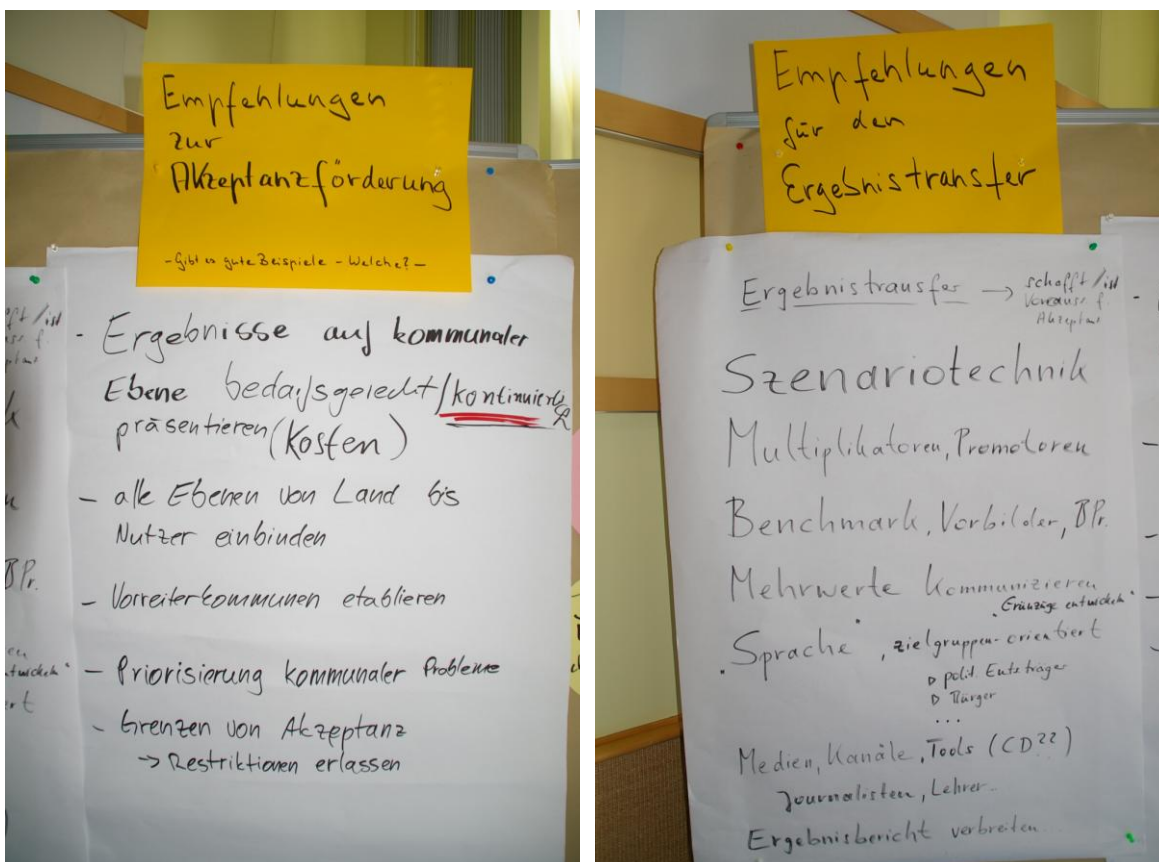 Empfehlungen
zur
Akzeptanzförderung
- Gibt es gute Beispiele - Welche? -
- Ergebnisse auf kommunaler
Ebene bedarfsgerecht/kontinuierlich
präsentieren (Kosten)
- alle Ebenen von Land bis
Nutzer einbinden
- Vorreiterkommunen etablieren
- Priorisierung kommunaler Probleme
- Grenzen von Akzeptanz
-> Restriktionen erlassen
BPr.
Empfehlungen
für den
Ergebnistransfer
Ergebnistransfer -> schafft/ist
Vorauss. f.
Akzeptanz
Szenariotechnik
Multiplikatoren, Promotoren
Benchmark, Vorbilder, BPr.
Mehrwerte kommunizieren
entwickeln"
"Sprache", zielgruppen-orientiert
▷ polit. Entsträger
▷ Bürger
...
Medien, Kanäle, Tools (CD??)
Journalisten, Lehrer..
Ergebnisbericht verbreiten...